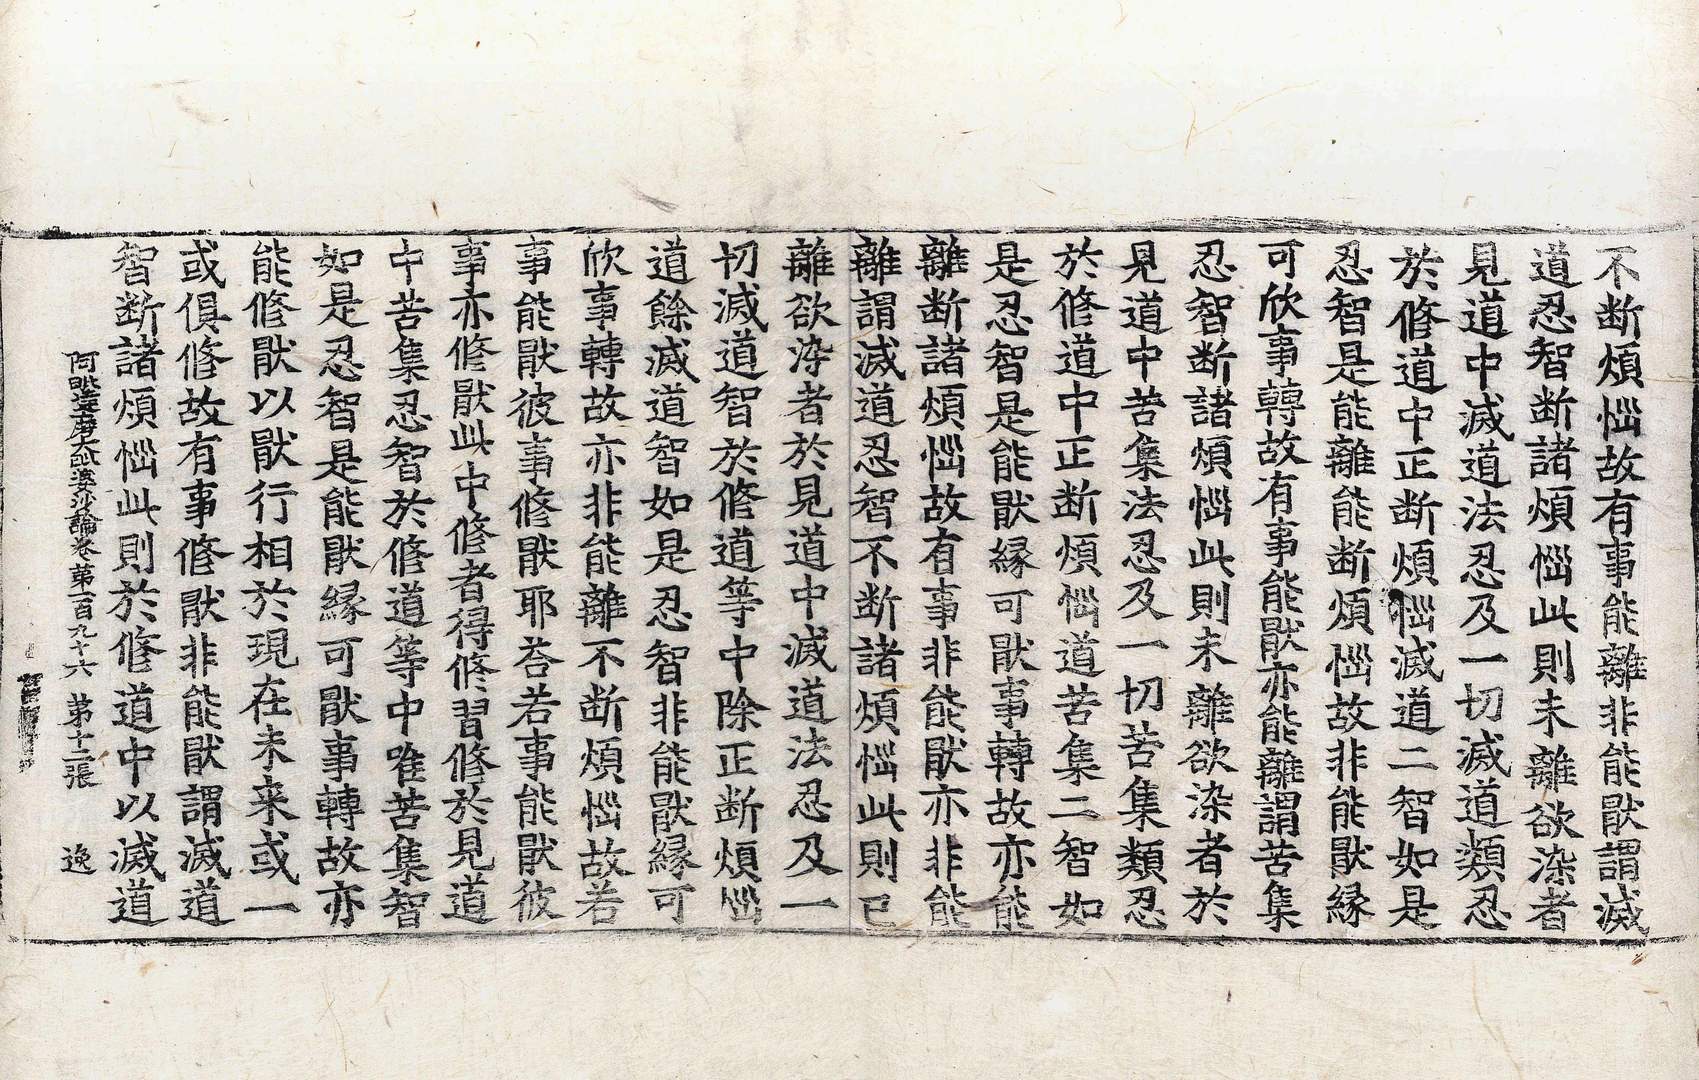 不断煩惱故有事能離非能猒謂滅
道忍智断諸煩惱此則未離欲染者
見道中滅道法忍及一切滅道類忍
於修道中正断煩惱滅道二智如是
忍智是能離能断煩惱故非能猒縁
可欣事轉故有事能猒亦能離謂苦集
忍智断諸煩惱此則未離欲染者於
見道中苦集法忍及一切苦集類忍
於修道中正断煩惱道苦集二智如
是忍智是能猒縁可猒事轉故亦能
離断諸煩惱故有事非能猒亦非能
離謂滅道忍智不断諸煩惱此則已
離欲染者於見道中滅道法忍及一
切滅道智於修道等中除正断煩惱
道餘滅道智如是忍智非能猒縁可
欣事轉故亦非能離不断煩惱故若
事能猒彼事修猒耶荅若事能猒彼
事亦修猒此中修者得修習修於見道
中苦集忍智於修道等中唯苦集智
如是忍智是能猒縁可猒事轉故亦
能修猒以猒行相於現在未来或一
或俱修故有事修猒非能猒謂滅道
智断諸煩惱此則於修道中以滅道
阿毗達磨大毗婆沙論卷第一百九十六 第十二張 逸